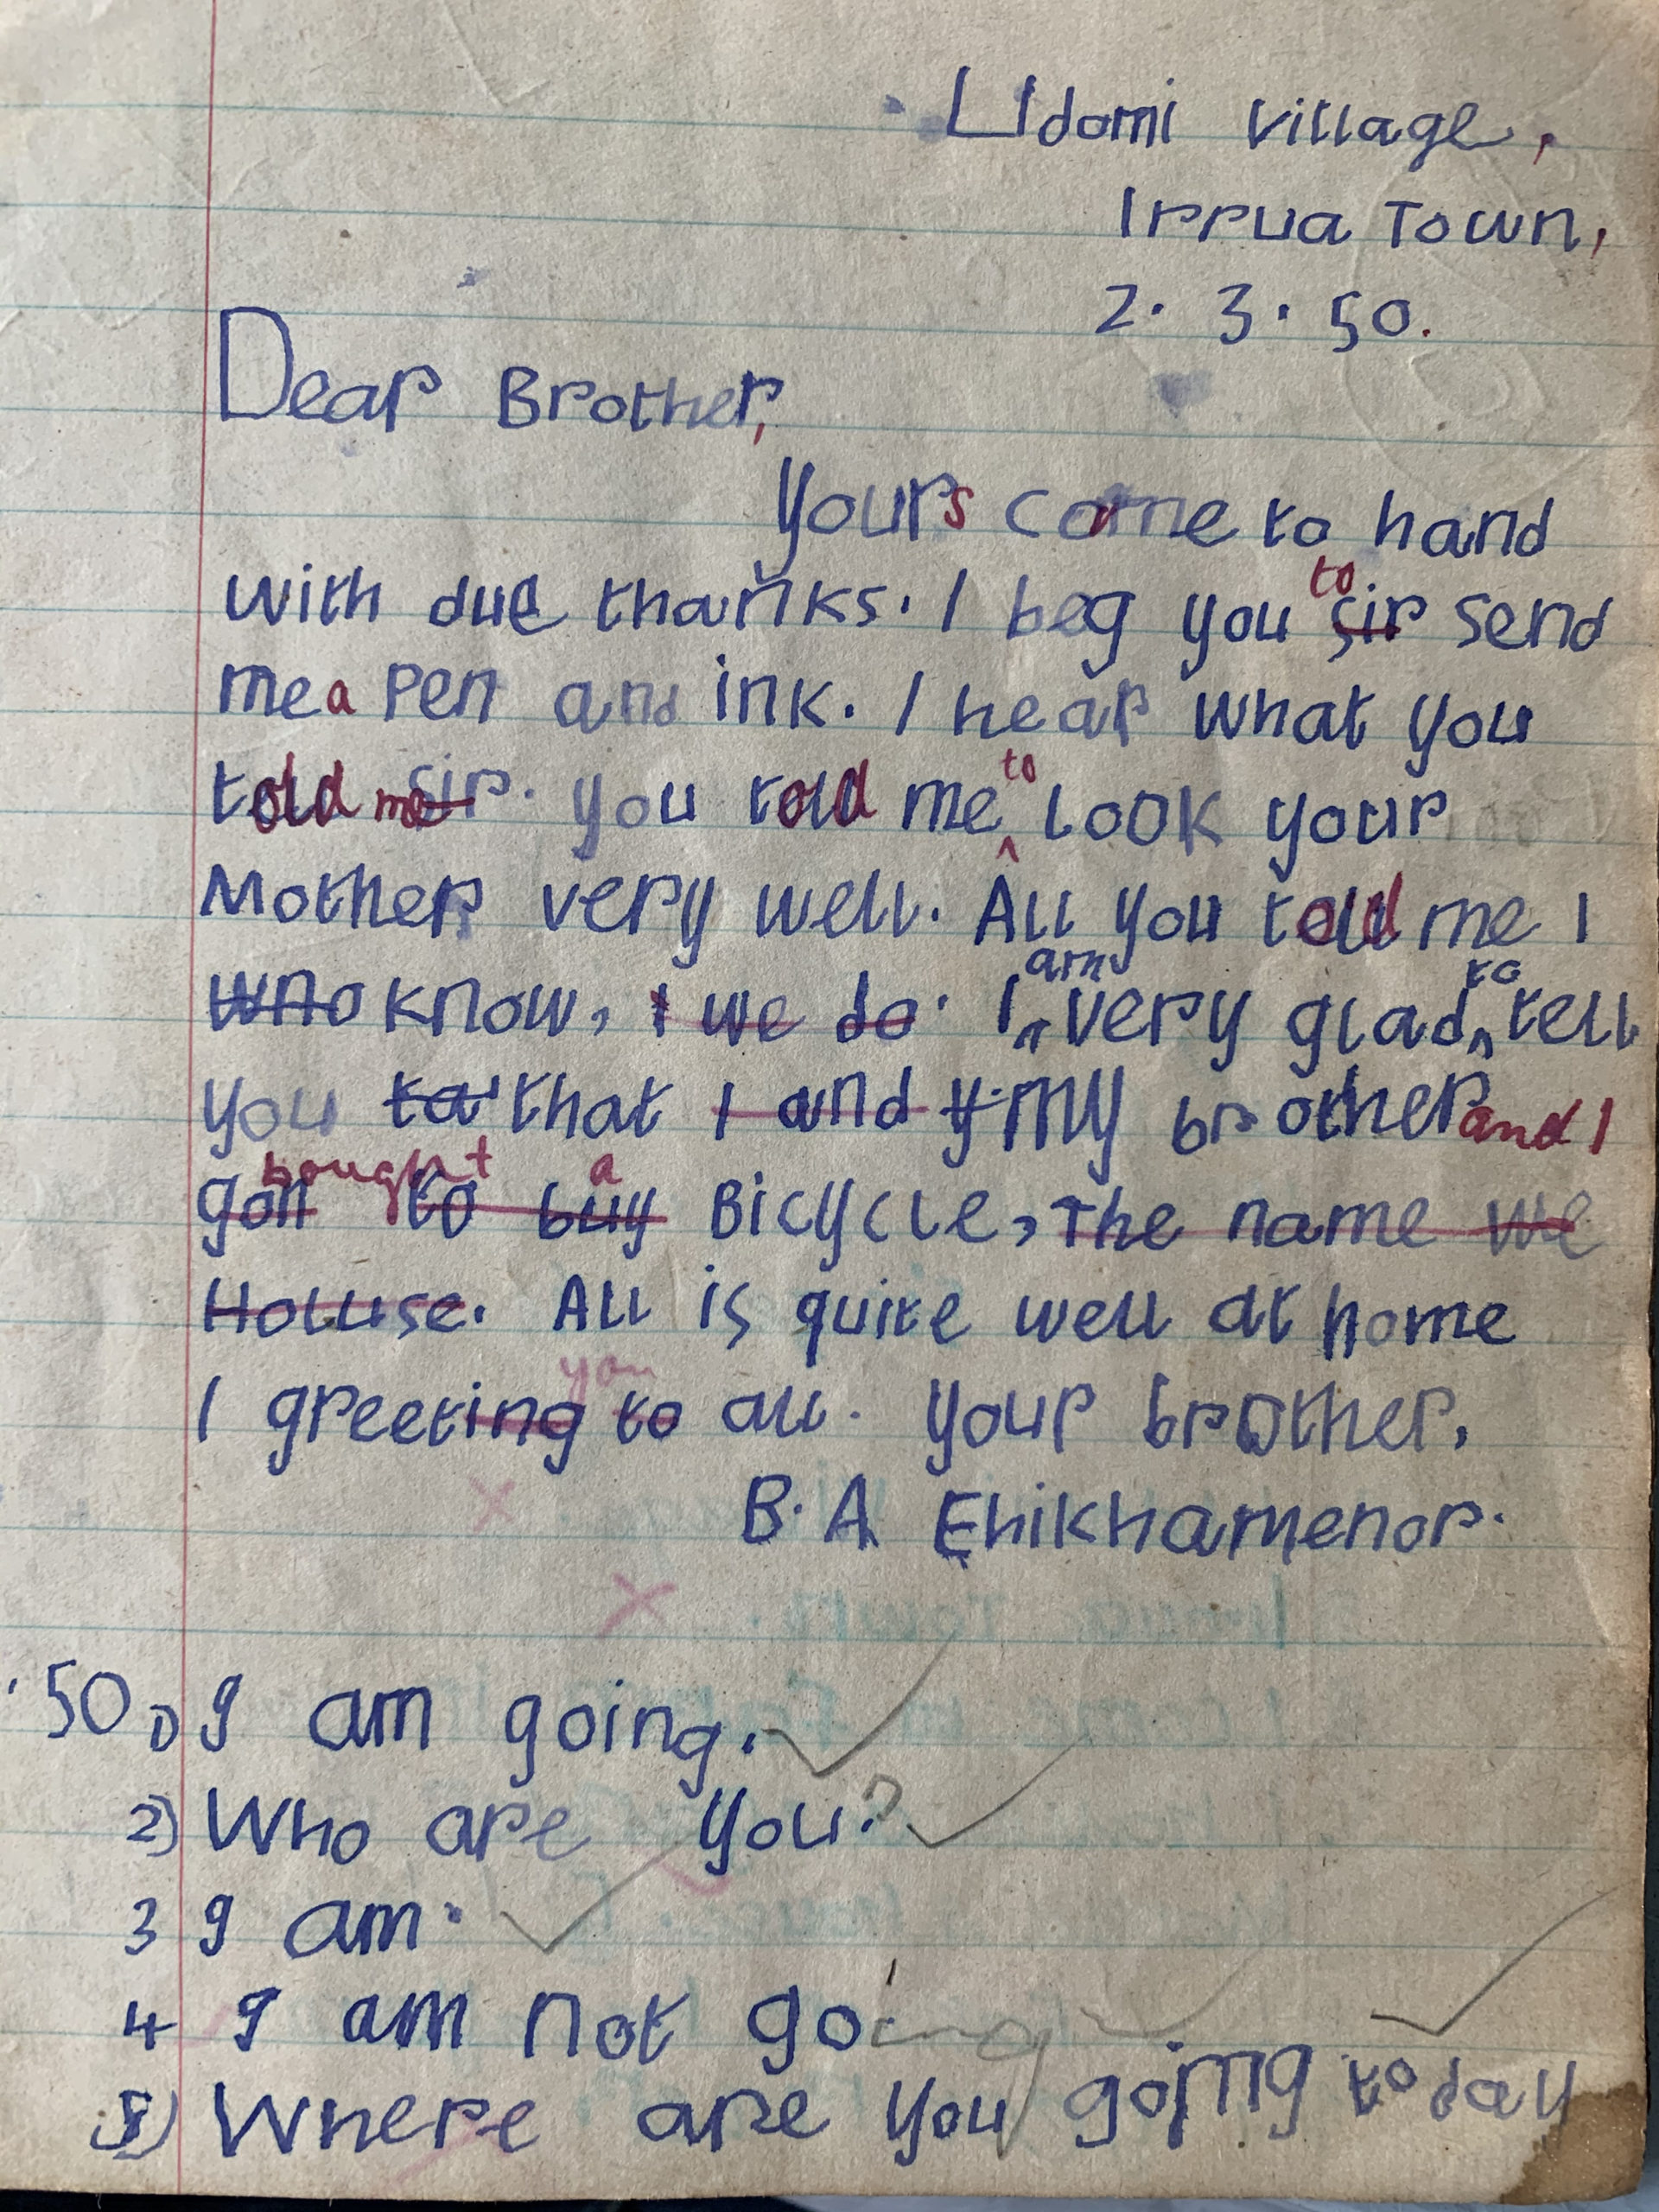 Udomi Village,
Irrua Town,
2. 3. 50.
Dear Brother,
Yours came to hand
with due thanks. I beg you to sir send
me a pen and ink. I hear what you
told me sir. you told me to look your
Mother very well. All you told me I
who know, I we do. I am very glad to tell
you ta that I and y my brother and I
gon to buy bought a Bicycle, The name we
House. All is quite well at home
I greeting to you all. your brother,
B. A Ehikhamenor.
'50 1) I am going.
2) Who are you?
3 I am.
4 I am not going
5) Where are you going today